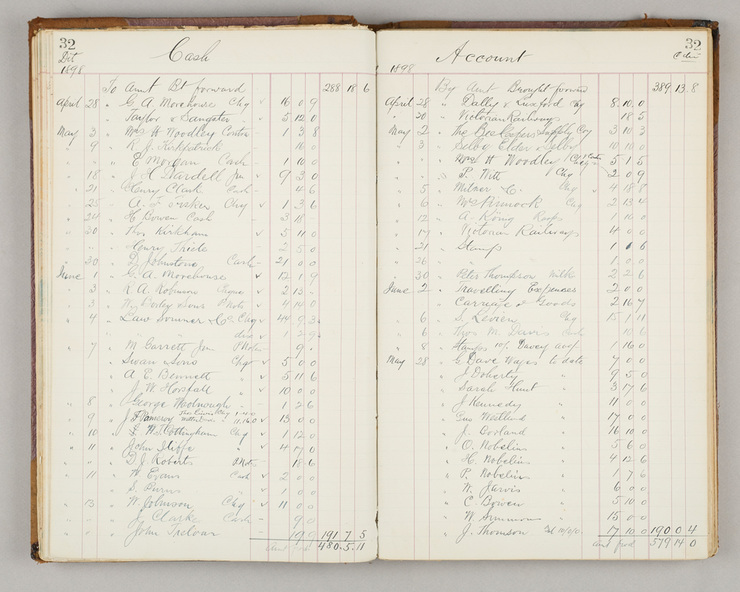 32
Cash
1898
To Amt Bt forward 288 18 6
April 28 " G. A. Morehouse Chq 16 0 9
Taylor & Sangster " 5 12 0
May 3 " Mrs H Woodley Contra 1 3 8
" 9 " R. J. Kirkpatrick 10 0
" " E Morgan Cash 1 10 0
" 18 " J. H. Dardell 9 3 0
" 21 " Henry Clark Cash 4 6
" 25 " A. F. Chq 1 3 6
" 24 " H Bowen Cash 3 18
" 30 " Thos Kirkham 5 11 0
" " Henry Thiele 2 5 0
" 30 " Johnstone Cash 21 0 0
June 1 " G. A. Morehouse 12 1 9
" 3 " R A Robinson 2 13
" 3 " Sons P Note 4 10 0
" 4 " Law Somner & Co Chq 44 9 3
" 7 " M Garrett Jun P Note 9
" " Swan & Sons Chq 5 0 0
" " A. E. Bennett " 5 11 6
" " J. W. Horsfall " 10 0 0
" 8 " George 1 2 6
" 9 " J. Pomeroy 11.16.0 13 0 0
" 10 " G. W. Cottingham Chq 1 12 0
" 11 " John Iliffe " 4 7 0
" " D J Roberts P Note 18 6
" 11 " W Evans Cash 2 0 0
" " " 1 0 0
" 13 " W Johnson Chq 11 0 0
" " J. Clark Cash 9 0
" " John 191 7 5
480.5.11
32
Account
1898
By Amt Brought forward 389 13 8
April 28 " Dalley & Luxford Chq 8 10 0
" 30 " Victorian Railways 18 5
May 2 " The Beekeepers Supply Coy 3 10 3
" 3 " Selby 10 10 0
" " Mrs H Woodley 5 1 5
" " P. Witt Chq 2 0 9
" 5 " Milner & Co Chq 4 18 8
" 6 " Wm Pinnock Chq 2 13 4
" 12 " A. König 1 10 0
" 17 " Victorian Railways 4 0 0
" 21 " Stamps 1 1 6
" 26 " " 1 0 0
" 30 " Peter Thompson 2 2 6
June 2 " Travelling Expenses 2 0 0
" " Carriage & Goods 2 16 7
" 6 " S. Levien Chq 15 1 11
" 6 " Thos M. Davis Cash 10 6
" 8 " Stamps 1 16 0
May 28 " G Dave Wages to date 7 0 0
" J Doherty " 9 5 0
" Sarah Hunt " 3 17 6
" J Kennedy " 11 0 0
" Geo Westland " 17 0 0
" J. " 16 10 0
" O. Nobelius " 5 6 0
" H. Nobelius " 4 12 6
" P. Nobelius " 1 7 6
" W. Jarvis " 6 0 0
" C. Bowen " 5 10 0
" W. " 15 0 0
" J. Thomson 7 10 0 190 0 4
amt fwd 579 14 0